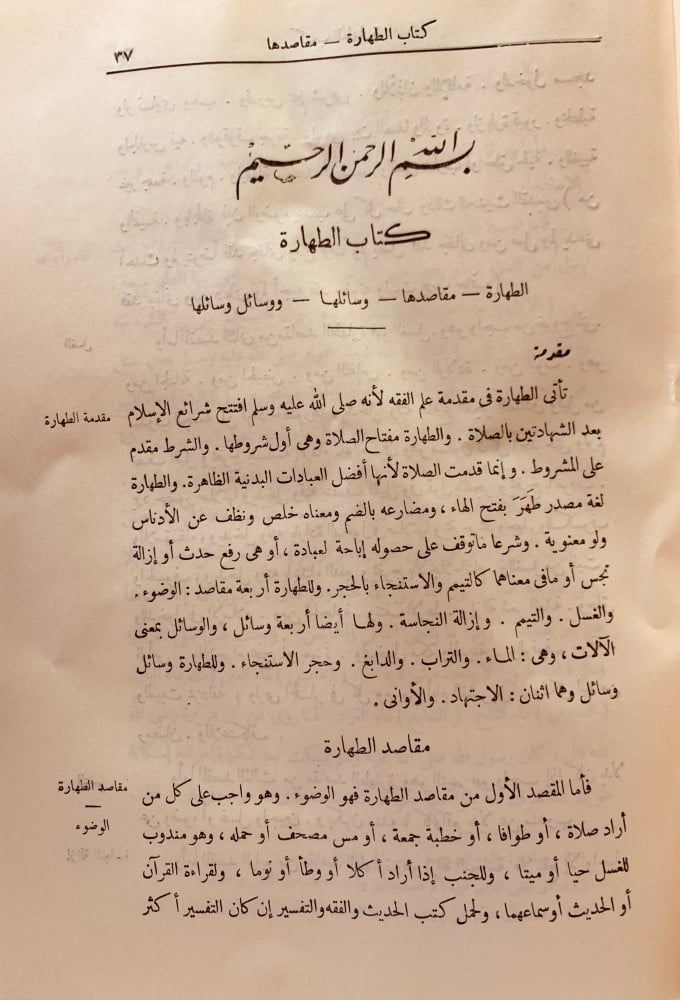 كتاب الطهارة — مقاصدها
٣٧
بسم الله الرحمن الرحيم
كتاب الطهارة
الطهارة — مقاصدها — وسائلها — ووسائل وسائلها
مقدمة
تأتى الطهارة فى مقدمة علم الفقه لأنه صلى الله عليه وسلم افتتح شرائع الإسلام
مقدمة الطهارة
بعد الشهادتين بالصلاة . والطهارة مفتاح الصلاة وهى أول شروطها . والشرط مقدم
على المشروط . وإنما قدمت الصلاة لأنها أفضل العبادات البدنية الظاهرة. والطهارة
لغة مصدر طَهَرَ بفتح الهاء ، ومضارعه بالضم ومعناه خلص ونظف عن الأدناس
ولو معنوية . وشرعا ماتوقف على حصوله إباحة لعبادة ، أو هى رفع حدث أو إزالة
نجس أو مافى معناهما كالتيمم والاستنجاء بالحجر. وللطهارة أربعة مقاصد : الوضوء .
والغسل . والتيمم . وإزالة النجاسة . ولها أيضا أربعة وسائل ، والوسائل بمعنى
الآلات ، وهى : الماء . والتراب . والدابغ . وحجر الاستنجاء . وللطهارة وسائل
وسائل وهما اثنان : الاجتهاد . والأوانى .
مقاصد الطهارة
فأما المقصد الأول من مقاصد الطهارة فهو الوضوء . وهو واجب على كل من
مقاصد الطهارة
—
الوضوء
أراد صلاة ، أو طوافا ، أو خطبة جمعة ، أو مس مصحف أو حمله ، وهو مندوب
للغسل حيا أو ميتا ، وللجنب إذا أراد أكلا أو وطأ أو نوما ، ولقراءة القرآن
أو الحديث أو سماعهما ، ولحمل كتب الحديث والفقه والتفسير إن كان التفسير أكثر